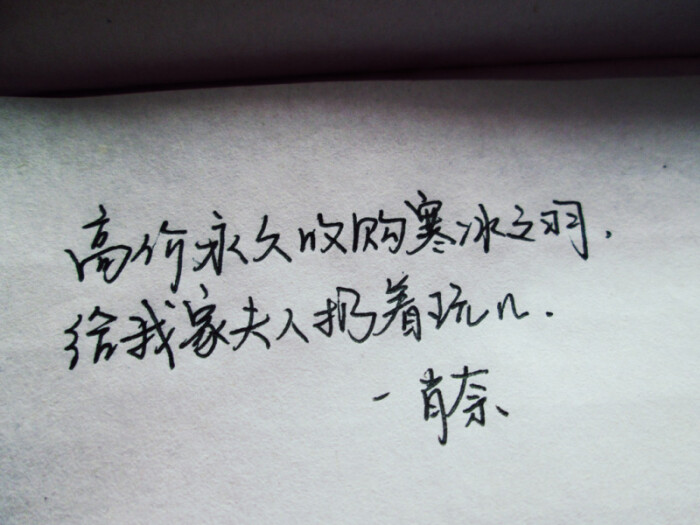 高价永久收购寒冰之羽.
给我家夫人扔着玩儿.
-肖奈